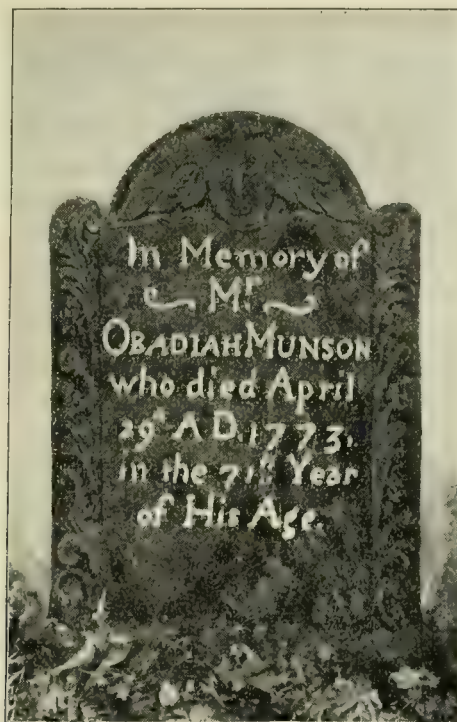 In Memory of
Mr
OBADIAH MUNSON
who died April
29th A D. 1773,
in the 71st Year
of His Age.